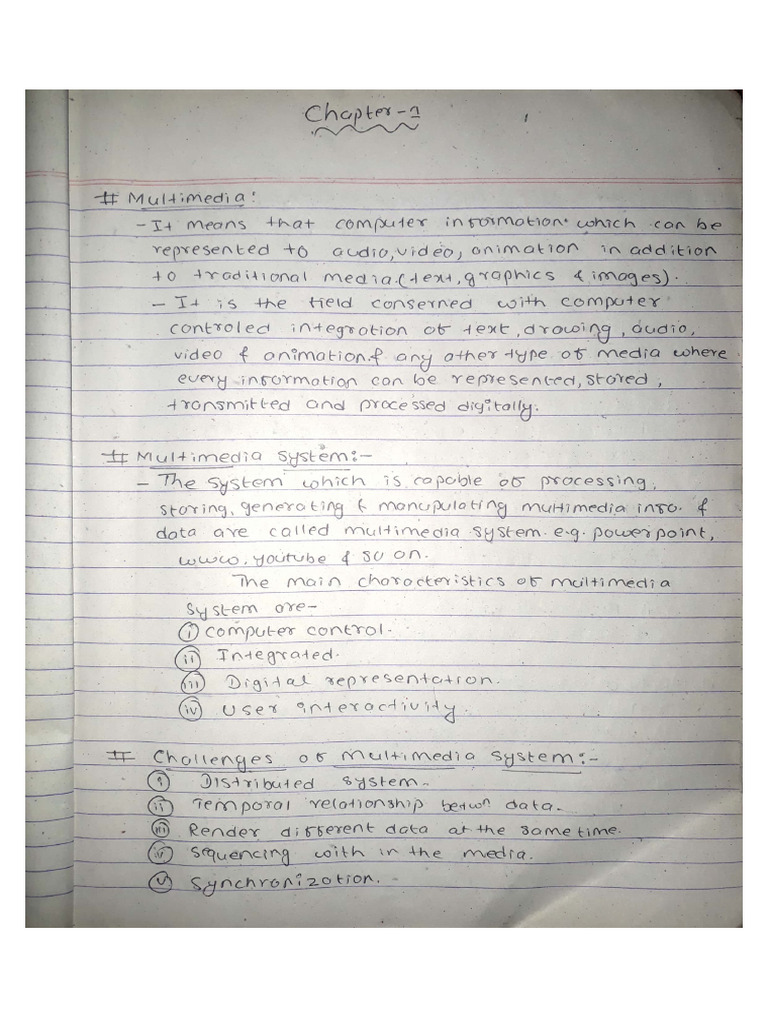 Chapter-1
# Multimedia:
- It means that computer information. which can be
represented to audio, video, animation in addition
to traditional media.(text, graphics & images).
- It is the field conserned with computer
controled integration of text, drawing, audio,
video & animation.& any other type of media where
every information can be represented, stored,
transmitted and processed digitally.
# Multimedia system:-
- The system which is capable of processing,
storing, generating & manupulating multimedia info. &
data are called multimedia system. e.g. powerpoint,
www, youtube & so on.
The main characteristics of multimedia
system are-
(i) computer control.
(ii) Integrated.
(iii) Digital representation.
(iv) User interactivity.
# Challenges of Multimedia system:-
(i) Distributed system.
(ii) Temporal relationship betwn data.
(iii) Render different data at the same time.
(iv) sequencing with in the media.
(v) Synchronization.